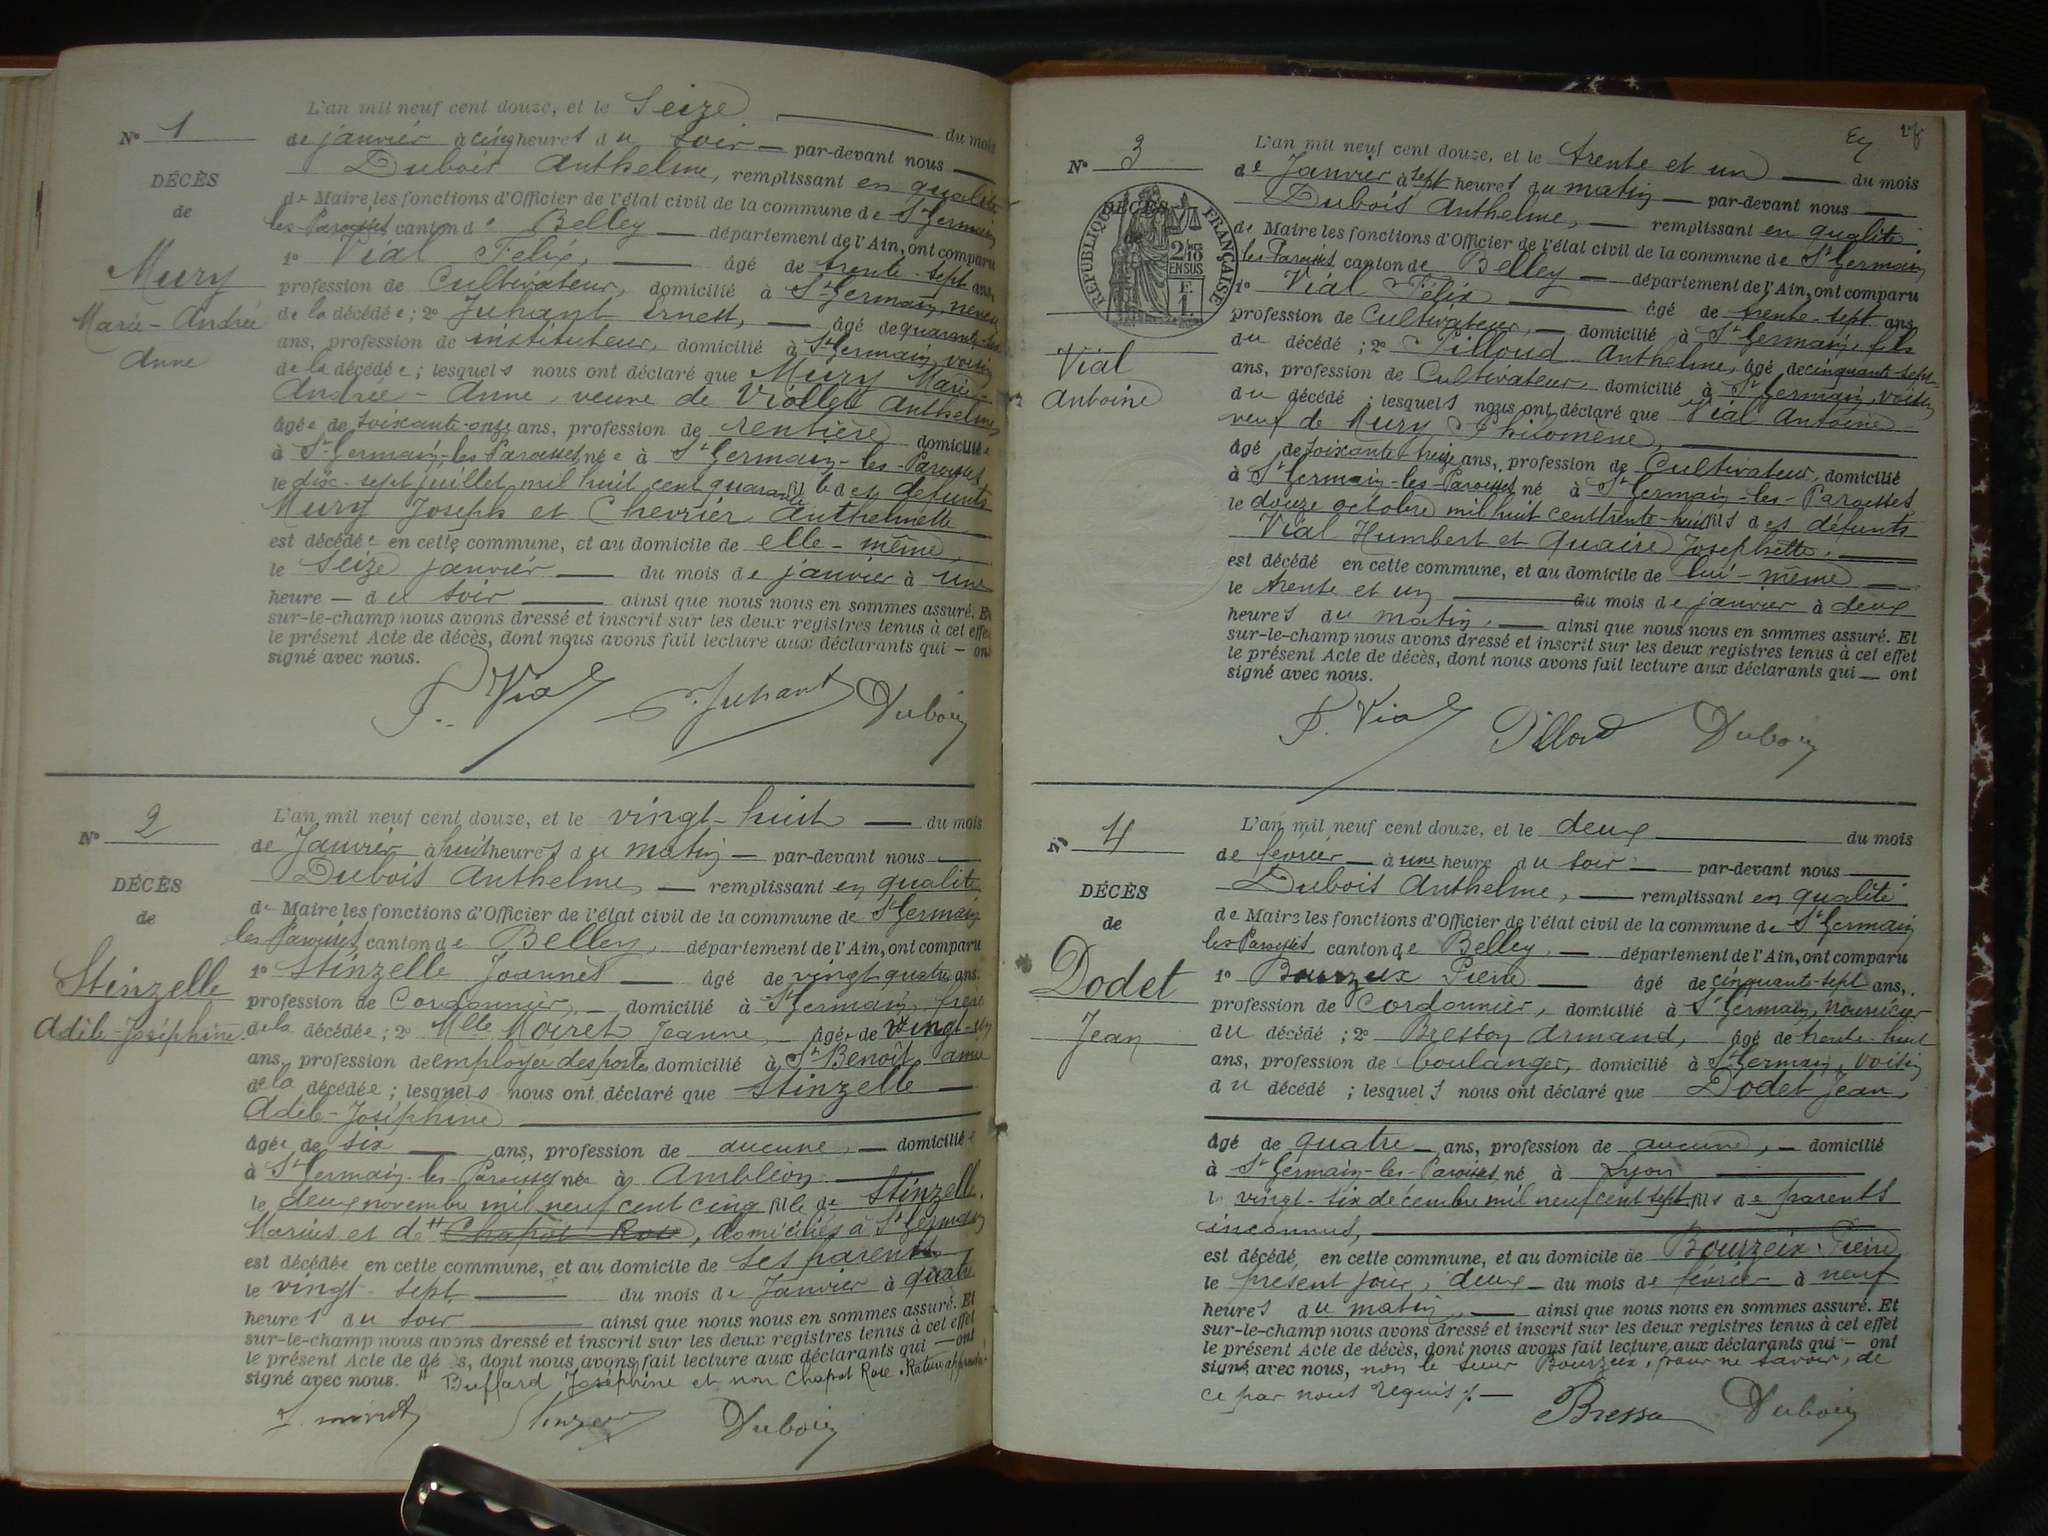 N° 1
DÉCÈS
de
Mury
Marie-Andrée
Anne
L'an mil neuf cent douze, et le Seize du mois
de janvier à cinq heures du soir par-devant nous
Dubois Anthelme, remplissant en qualité
de Maire les fonctions d'Officier de l'état civil de la commune de St Germain
les Paroisses canton de Belley département de l'Ain, ont comparu
1° Vial Félix, âgé de trente-sept ans,
profession de Cultivateur, domicilié à St Germain, neveu
de la décédée; 2° Juhant Ernest, âgé de quarante
ans, profession de instituteur, domicilié à St Germain, voisin
de la décédée; lesquels nous ont déclaré que Mury Marie-
Andrée-Anne, veuve de Viollet Anthelme,
âgée de soixante-onze ans, profession de rentière domiciliée
à St Germain-les-Paroisses née à St Germain-les-Paroisses
le dix-sept juillet mil huit cent quarante fille des défunts
Mury Joseph et Chevrier Anthelmette
est décédée en cette commune, et au domicile de elle-même,
le Seize janvier du mois de janvier à une
heure du soir ainsi que nous nous en sommes assuré. Et
sur-le-champ nous avons dressé et inscrit sur les deux registres tenus à cet effet
le présent Acte de décès, dont nous avons fait lecture aux déclarants qui ont
signé avec nous.
F. Vial Juhant Dubois
N° 2
DÉCÈS
de
Stinzelle
Adèle-Joséphine
L'an mil neuf cent douze, et le vingt-huit du mois
de Janvier à huit heures du matin par-devant nous
Dubois Anthelme, remplissant en qualité
de Maire les fonctions d'Officier de l'état civil de la commune de St Germain
les Paroisses, canton de Belley, département de l'Ain, ont comparu
1° Stinzelle Joannès âgé de vingt quatre ans,
profession de Cordonnier, domicilié à St Germain, frère
de la décédée; 2° Mlle Moiret Jeanne, âgée de vingt-un
ans, profession de employée des postes domicilié à St Benoît amie
de la décédée; lesquels nous ont déclaré que Stinzelle
Adèle-Joséphine
âgée de six ans, profession de aucune, domiciliée
à St Germain-les-Paroisses née à Ambléon
le deux novembre mil neuf cent cinq fille de Stinzelle
Marius et de # Chapot Rose, domiciliés à St Germain
est décédée en cette commune, et au domicile de ses parents
le vingt-sept du mois de Janvier à quatre
heures du soir ainsi que nous nous en sommes assuré. Et
sur-le-champ nous avons dressé et inscrit sur les deux registres tenus à cet effet
le présent Acte de décès, dont nous avons fait lecture aux déclarants qui ont
signé avec nous. # Buffard Joséphine et non Chapot Rose. Rature approuvée
Dubois
N° 3
DÉCÈS
RÉPUBLIQUE FRANÇAISE
2/10 EN SUS
1 F.
Vial
Antoine
L'an mil neuf cent douze, et le trente et un du mois
de Janvier à sept heures du matin par-devant nous
Dubois Anthelme, remplissant en qualité
de Maire les fonctions d'Officier de l'état civil de la commune de St Germain
les Paroisses canton de Belley département de l'Ain, ont comparu
1° Vial Félix âgé de trente-sept ans,
profession de Cultivateur, domicilié à St Germain, fils
du décédé; 2° Pilloud Anthelme, âgé de cinquante-sept
ans, profession de Cultivateur, domicilié à St Germain, voisin
du décédé; lesquels nous ont déclaré que Vial Antoine
veuf de Mury Philomène,
âgé de soixante-treize ans, profession de Cultivateur, domicilié
à St Germain-les-Paroisses né à St Germain-les-Paroisses
le douze octobre mil huit cent trente-huit fils des défunts
Vial Humbert et Quaire Josephette,
est décédé en cette commune, et au domicile de lui-même
le trente et un du mois de janvier à deux
heures du matin, ainsi que nous nous en sommes assuré. Et
sur-le-champ nous avons dressé et inscrit sur les deux registres tenus à cet effet
le présent Acte de décès, dont nous avons fait lecture aux déclarants qui ont
signé avec nous.
F. Vial Pilloud Dubois
N° 4
DÉCÈS
de
Dodet
Jean
L'an mil neuf cent douze, et le deux du mois
de février à une heure du soir par-devant nous
Dubois Anthelme, remplissant en qualité
de Maire les fonctions d'Officier de l'état civil de la commune de St Germain
les Paroisses canton de Belley, département de l'Ain, ont comparu
1° Bourzeix Pierre âgé de cinquante-sept ans,
profession de Cordonnier, domicilié à St Germain, nourricier
du décédé; 2° Bresson Armand, âgé de trente-huit
ans, profession de boulanger, domicilié à St Germain, voisin
du décédé; lesquels nous ont déclaré que Dodet Jean,
âgé de quatre ans, profession de aucune, domicilié
à St Germain-les-Paroisses né à Lyon
le vingt-six décembre mil neuf cent sept fils de parents
inconnus,
est décédé en cette commune, et au domicile de Bourzeix Pierre
le présent jour, deux du mois de février à neuf
heures du matin, ainsi que nous nous en sommes assuré. Et
sur-le-champ nous avons dressé et inscrit sur les deux registres tenus à cet effet
le présent Acte de décès, dont nous avons fait lecture aux déclarants qui ont
signé avec nous, non le sieur Bourzeix, pour ne savoir, de
ce par nous requis.
Bresson Dubois